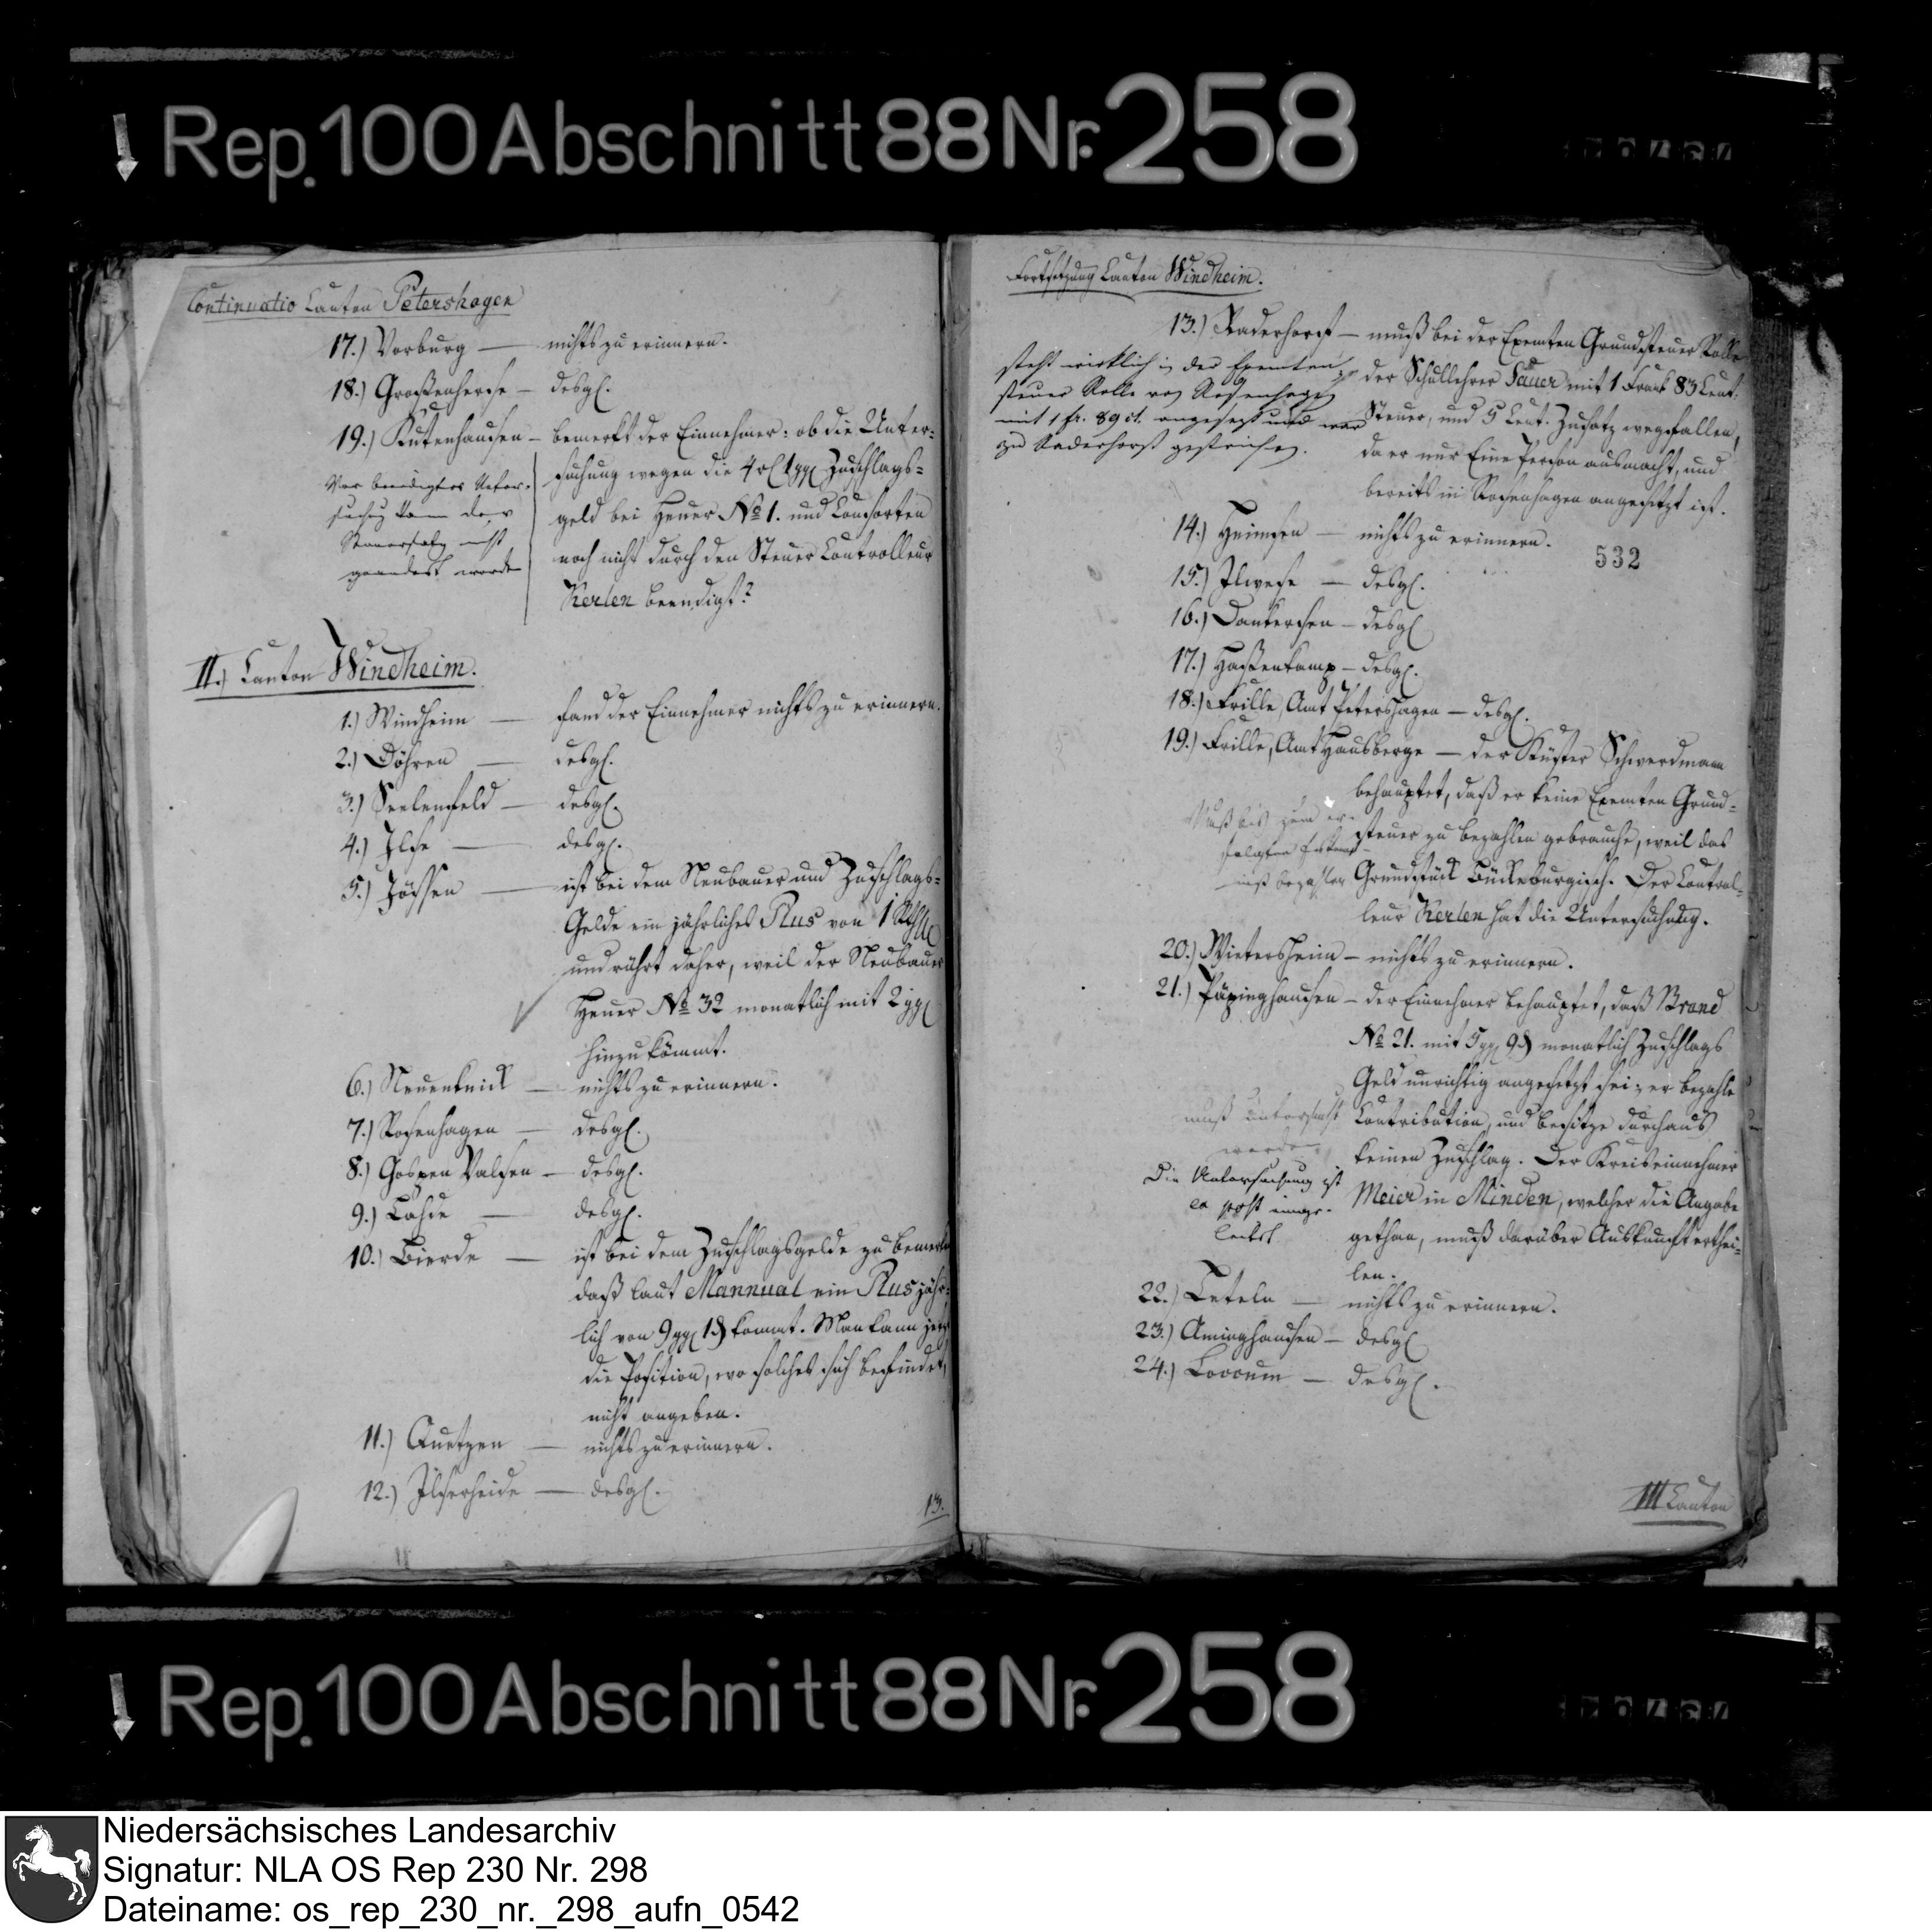 Rep. 100 Abschnitt 88 Nr. 258
Continuatio Canton Petershagen
17.) Vorburg — nichts zu erinnern.
18.) Großenheerse — desgl.
19.) Kutenhausen — bemerkt der Einnehmer: ob die Unter-
suchung wegen die 4 rl 1 ggl Zuschlags-
geld bei Heuer No 1. und Consorten
noch nicht durch den Steuer Controlleur
Kerlen beendigt?
Vor beendigter Unter-
suchung kann der
Steuersatz nicht
geändert werden
II.) Canton Windheim.
1.) Windheim — fand der Einnehmer nichts zu erinnern.
2.) Döhren — desgl.
3.) Seelenfeld — desgl.
4.) Ilse — desgl.
5.) Jössen — ist bei dem Neubauer und Zuschlags-
Gelde ein jährliches Plus von 1 Rthlr
und rührt daher, weil der Neubauer
Heuer No 32 monatlich mit 2 ggl
hinzukömmt.
6.) Neuenknick — nichts zu erinnern.
7.) Rosenhagen — desgl.
8.) Gospen Valsen — desgl.
9.) Lahde — desgl.
10.) Bierde — ist bei dem Zuschlagsgelde zu bemerken
daß laut Mannual ein Plus jähr-
lich von 9 ggl 1 d kommt. Man kann jetzt
die Position, wo solches sich befindet,
nicht angeben.
11.) Quetzen — nichts zu erinnern.
12.) Ilserheide — desgl.
13.
Fortsetzung Canton Windheim.
13.) Raderhorst — muß bei der Exemten Grundsteuer Rolle
der Schullehrer Sauer mit 1 Frank 83 Cent.
Steuer, und 5 Cent. Zusatz wegfallen,
da er nur Eine Person ausmacht, und
bereits in Rosenhagen angesetzt ist.
steht wirklich in der Exemten
steuer Rolle von Rosenhagen
mit 1 fr. 89 ct. angesetzt und war
zu Raderhorst gestrichen.
14.) Heimsen — nichts zu erinnern.
532
15.) Ilwese — desgl.
16.) Dankersen — desgl
17.) Haßenkamp — desgl.
18.) Frille, Amt Petershagen — desgl.
19.) Frille, Amt Hausberge — der Küster Schwerdmann
behauptet, daß er keine Exemten Grund-
steuer zu bezahlen gebrauche, weil das
Grundstück Bückeburgisch. Der Control-
leur Kerlen hat die Untersuchung.
Muß bis zum er-
folgten
muß bezahlen
20.) Wietersheim — nichts zu erinnern.
21.) Päpinghausen — der Einnehmer behauptet, daß Brand
No 21. mit 5 ggl 9 d monatlich Zuschlags
Geld unrichtig angesetzt sei; er bezahle
Contribution, und besitze durchaus
keinen Zuschlag. Der Kreiseinnehmer
Meier in Minden, welcher die Angabe
gethan, muß darüber Auskunft erthei-
len.
muß untersucht
werden
Die Untersuchung ist
ex post einge-
leitet.
22.) Leteln — nichts zu erinnern.
23.) Aminghausen — desgl
24.) Loccum — desgl.
III Canton
Rep. 100 Abschnitt 88 Nr. 258
Niedersächsisches Landesarchiv
Signatur: NLA OS Rep 230 Nr. 298
Dateiname: os_rep_230_nr._298_aufn_0542